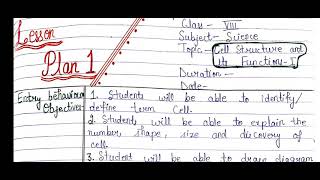 Lesson
Plan 1
Class- VIII
Subject- Science
Topic- Cell Structure and
its Function-I
Duration-
Date-
Entry behaviour
Objectives-
1. Students will be able to identify/
define term Cell.
2. Students will be able to explain the
number, shape, size and discovery of
cell.
3. Student will be able to draw diagram